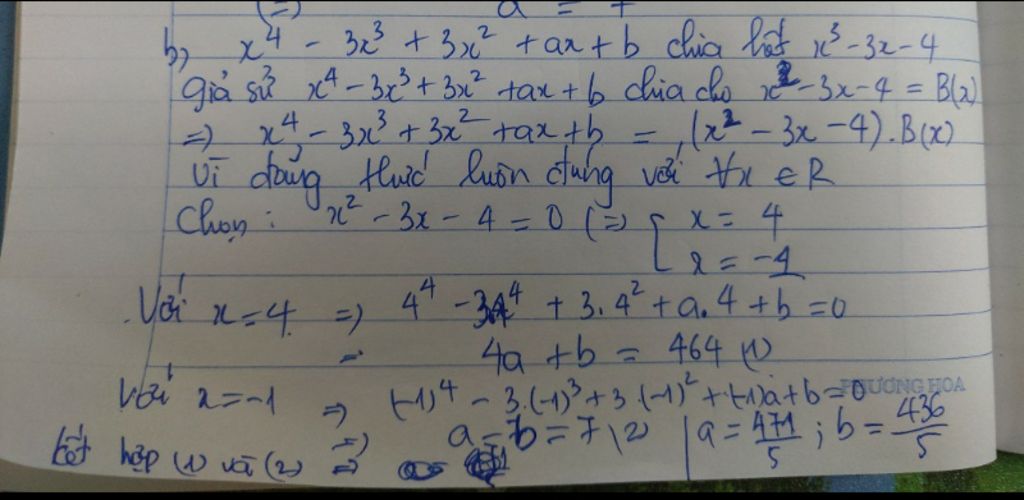 (=) a = 7
b, x⁴ - 3x³ + 3x² + ax + b chia hết x³ - 3x - 4
giả sử x⁴ - 3x³ + 3x² + ax + b chia cho x² - 3x - 4 = B(x)
=) x⁴ - 3x³ + 3x² + ax + b = (x² - 3x - 4) . B(x)
Vì đẳng thức luôn đúng với ∀x ∈ R
Chọn : x² - 3x - 4 = 0 (=) [ x = 4
x = -1
Với x = 4 =) 4⁴ - 3.4⁴ + 3.4² + a.4 + b = 0
= 4a + b = 464 (1)
Với x = -1 => (-1)⁴ - 3.(-1)³ + 3.(-1)² + (-1)a + b = 0
PHƯƠNG HOA
=) a - b = 7 (2) | a = 471/5 ; b = 436/5
kết hợp (1) và (2) =>